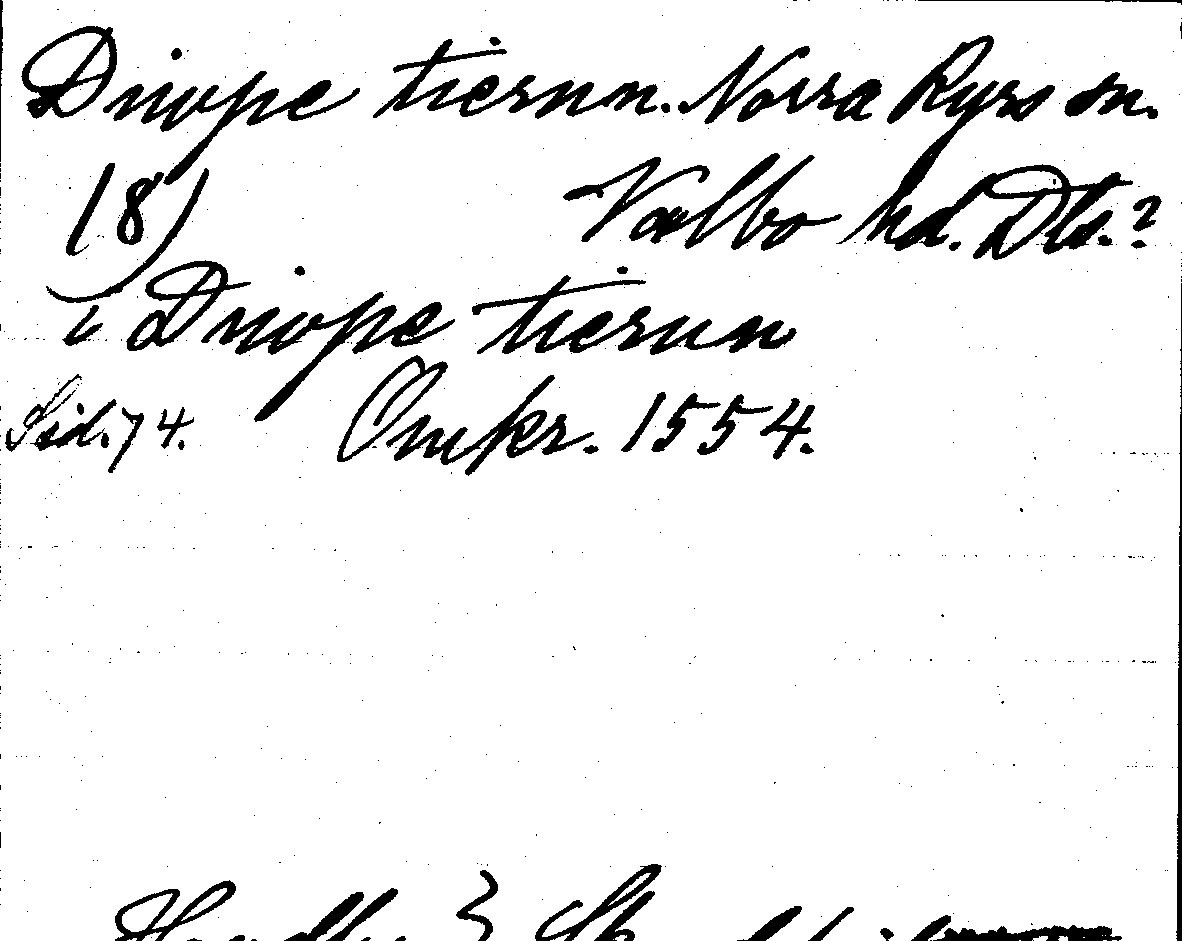 Driope tiernn. Norra Ryrs sn.
(8) Valbo hd. Dls.?
i Driope tiernn
Sid. 74. Omkr. 1554.